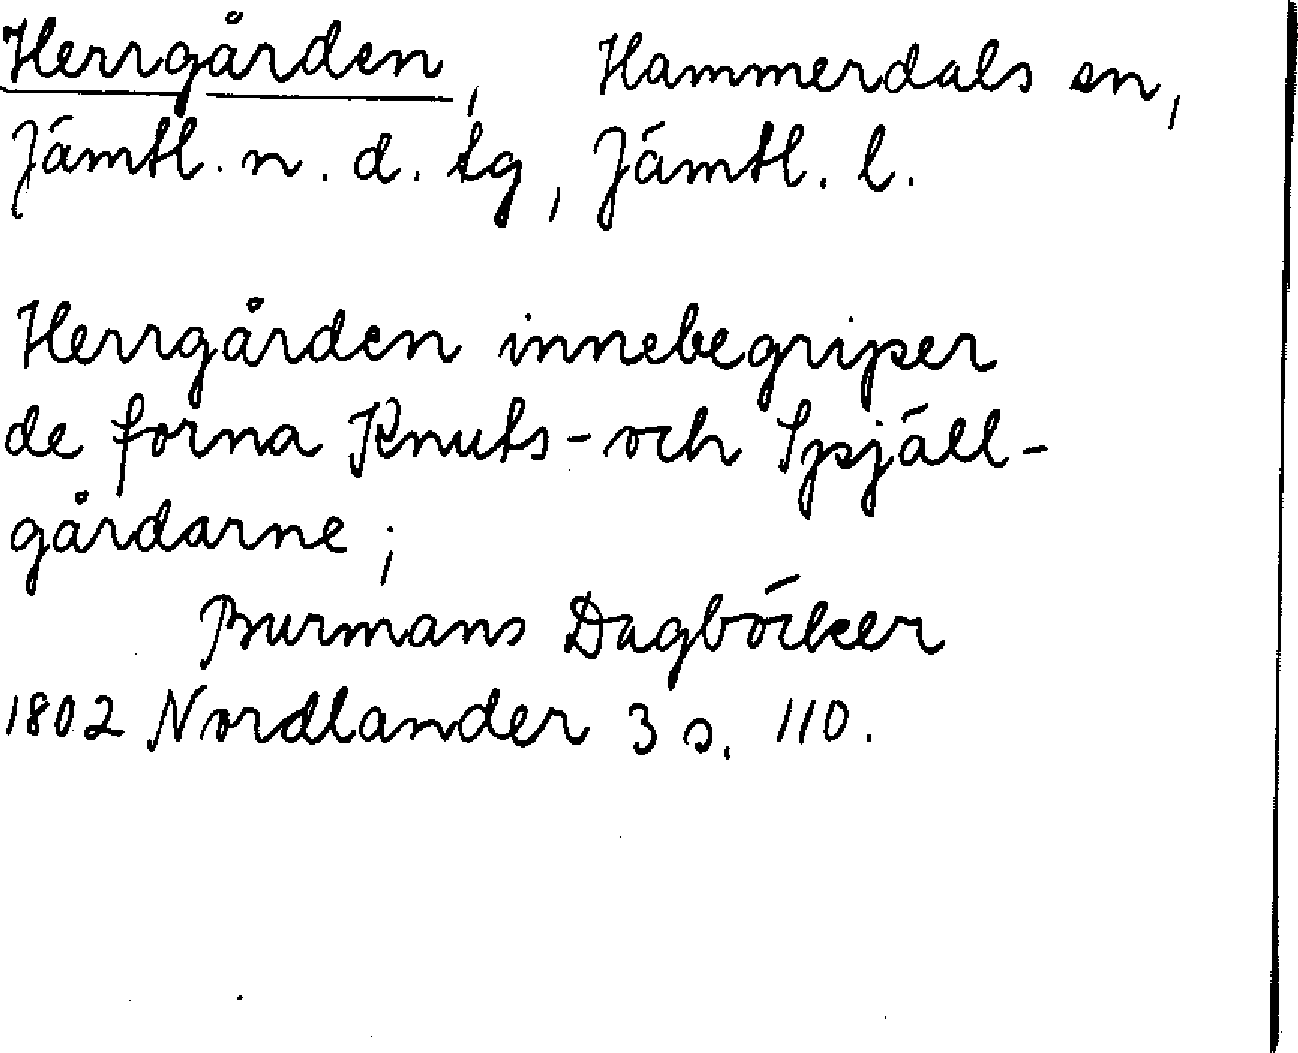 Herrgården, Hammerdals sn,
Jämtl. n. d. tg, Jämtl. l.
Herrgården innebegriper
de forna Knuts- och Spjäll-
gårdarne;
Burmans Dagböcker
1802 Nordlander 3 s. 110.